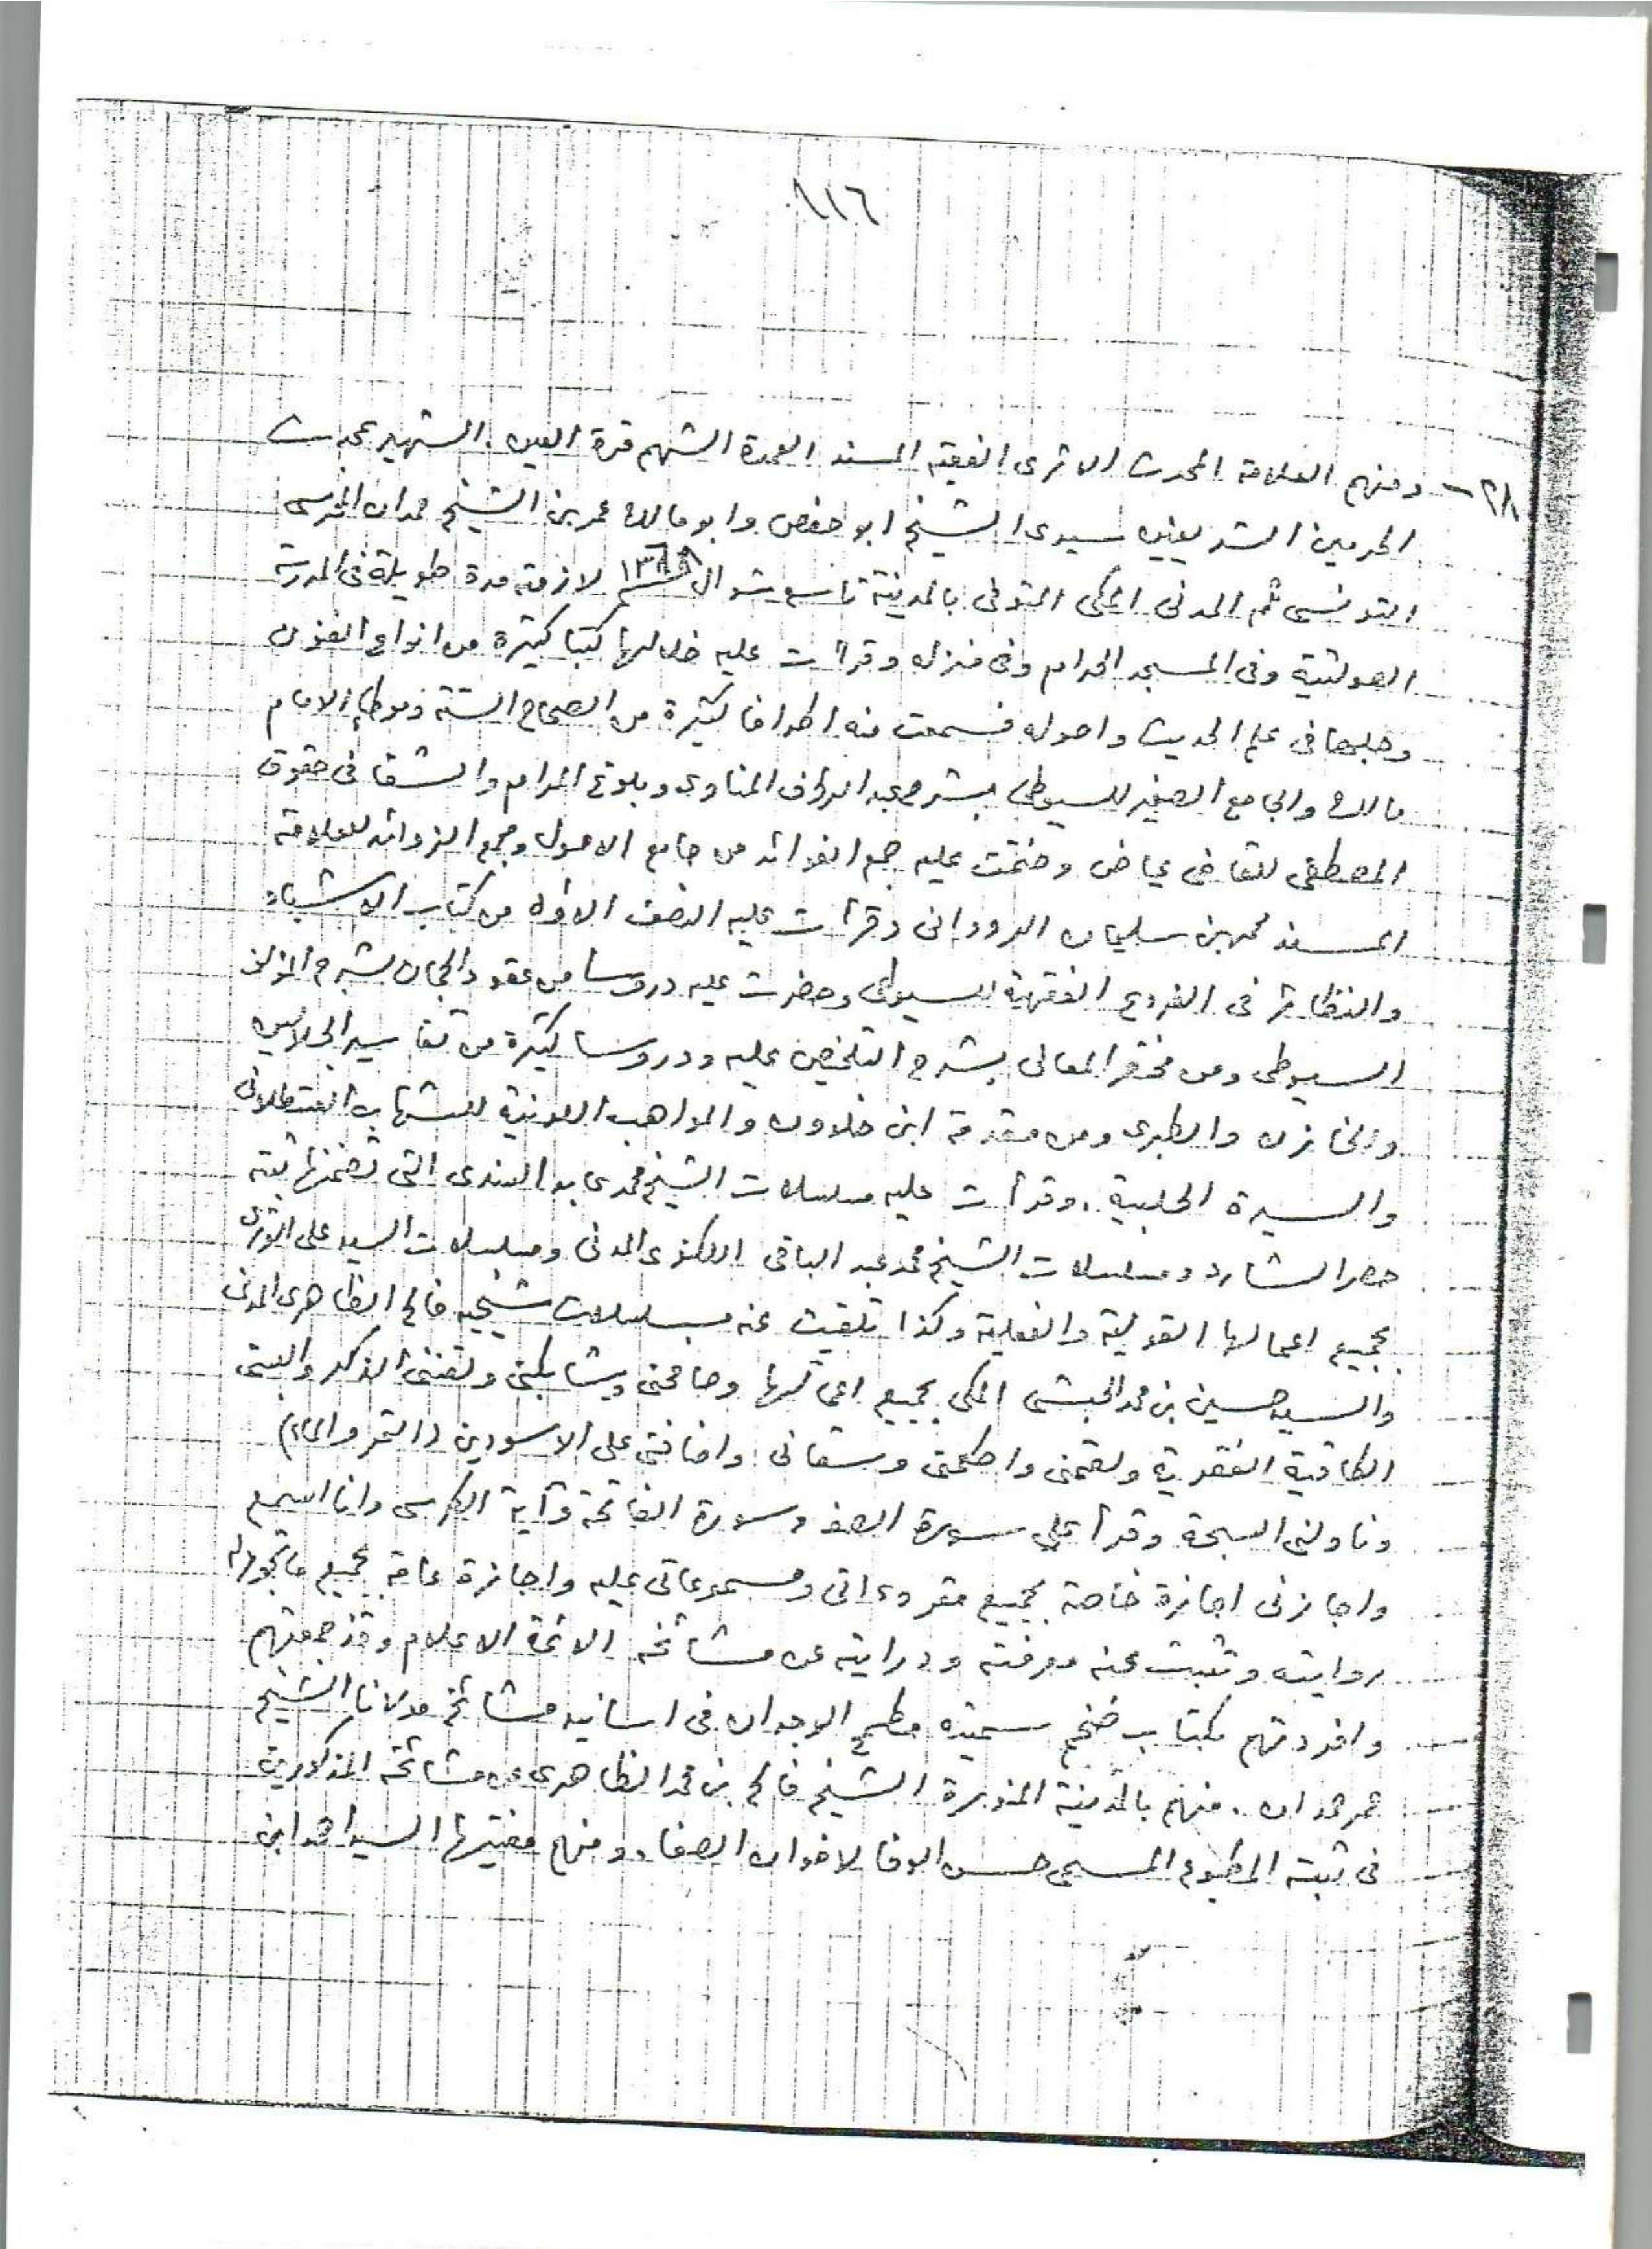 ١١٦
٢٨- ومنهم العلامة المحدث الاثرى الفقيه المسند العمدة الشهم قرة العين. الشهير بمحدث
الحرمين الشريفين سيدى الشيخ ابو حفص وابو مالك عمر بن الشيخ حمدان المحرسى
التونسى ثم المدنى المكى المتوفى بالمدينة تاسع شوال ١٣٦٨ لازمته مدة طويلة فى المدرسة
الصولتية وفى المسجد الحرام وفى منزله وقرأت عليه خلالها كتبا كثيرة من انواع الفنون
وجلها فى علم الحديث واصوله فسمعت منه اطرافا كثيرة من الصحاح الستة وموطإ الامام
مالك والجامع الصغير للسيوطى بشرح عبد الرؤف المناوى وبلوغ المرام والشفا فى حقوق
المصطفى للقاضى عياض وختمت عليه جمع الفوائد من جامع الاصول ومجمع الزوائد للعلامة
المسند محمد بن سليمان الرودانى وقرأت عليه النصف الاول من كتاب الاشباه
والنظائر فى الفروع الفقهية للسيوطى وحضرت عليه دروسا من عقود الجمان بشرح المؤلف
السيوطى ومن مختصر المعانى بشرح التلخيص عليه ودروسا كثيرة من تفاسير الجلالين
والخازن والطبرى ومن مقدمة ابن خلدون والمواهب اللدنية للشهاب القسطلانى
والسيرة الحلبية. وقرأت عليه مسلسلات الشيخ محمد عابد السندى التى تضمنها ثبته
حصر الشارد ومسلسلات الشيخ محمد عبد الباقى اللكنوى المدنى ومسلسلات السيد على الوترى
بجميع اعمالها القولية والفعلية وكذا تلقيت عنه مسلسلات شيخيه فالح الظاهرى المدنى
والسيد حسين بن محمد الحبشى المكى بجميع اعمالها وصافحنى وشابكنى ولقننى الذكر والبسنى
الطاقية الفقرية ولقمنى واضحكنى وسقانى واضافنى على الاسودين (التمر والماء)
وناولنى السبحة وقرأ على سورة الصف وسورة الفاتحة وآية الكرسى وانا اسمع
واجازنى اجازة خاصة بجميع مقروءاتى ومسموعاتى عليه واجازة عامة بجميع ما تجوز له
روايته وتثبت عنه معرفته ودرايته عن مشائخه الائمة الاعلام وقد جمعتهم
وافردتهم بكتاب ضخم سميته مطمح الوجدان فى اسانيد مشائخ مولانا الشيخ
عمر حمدان. منهم بالمدينة المنورة الشيخ فالح بن محمد الظاهرى عن مشائخه المذكورين
فى ثبته المطبوع المسمى حسن الوفا لاخوان الصفا. ومنهم مفتيها السيد احمد ابن